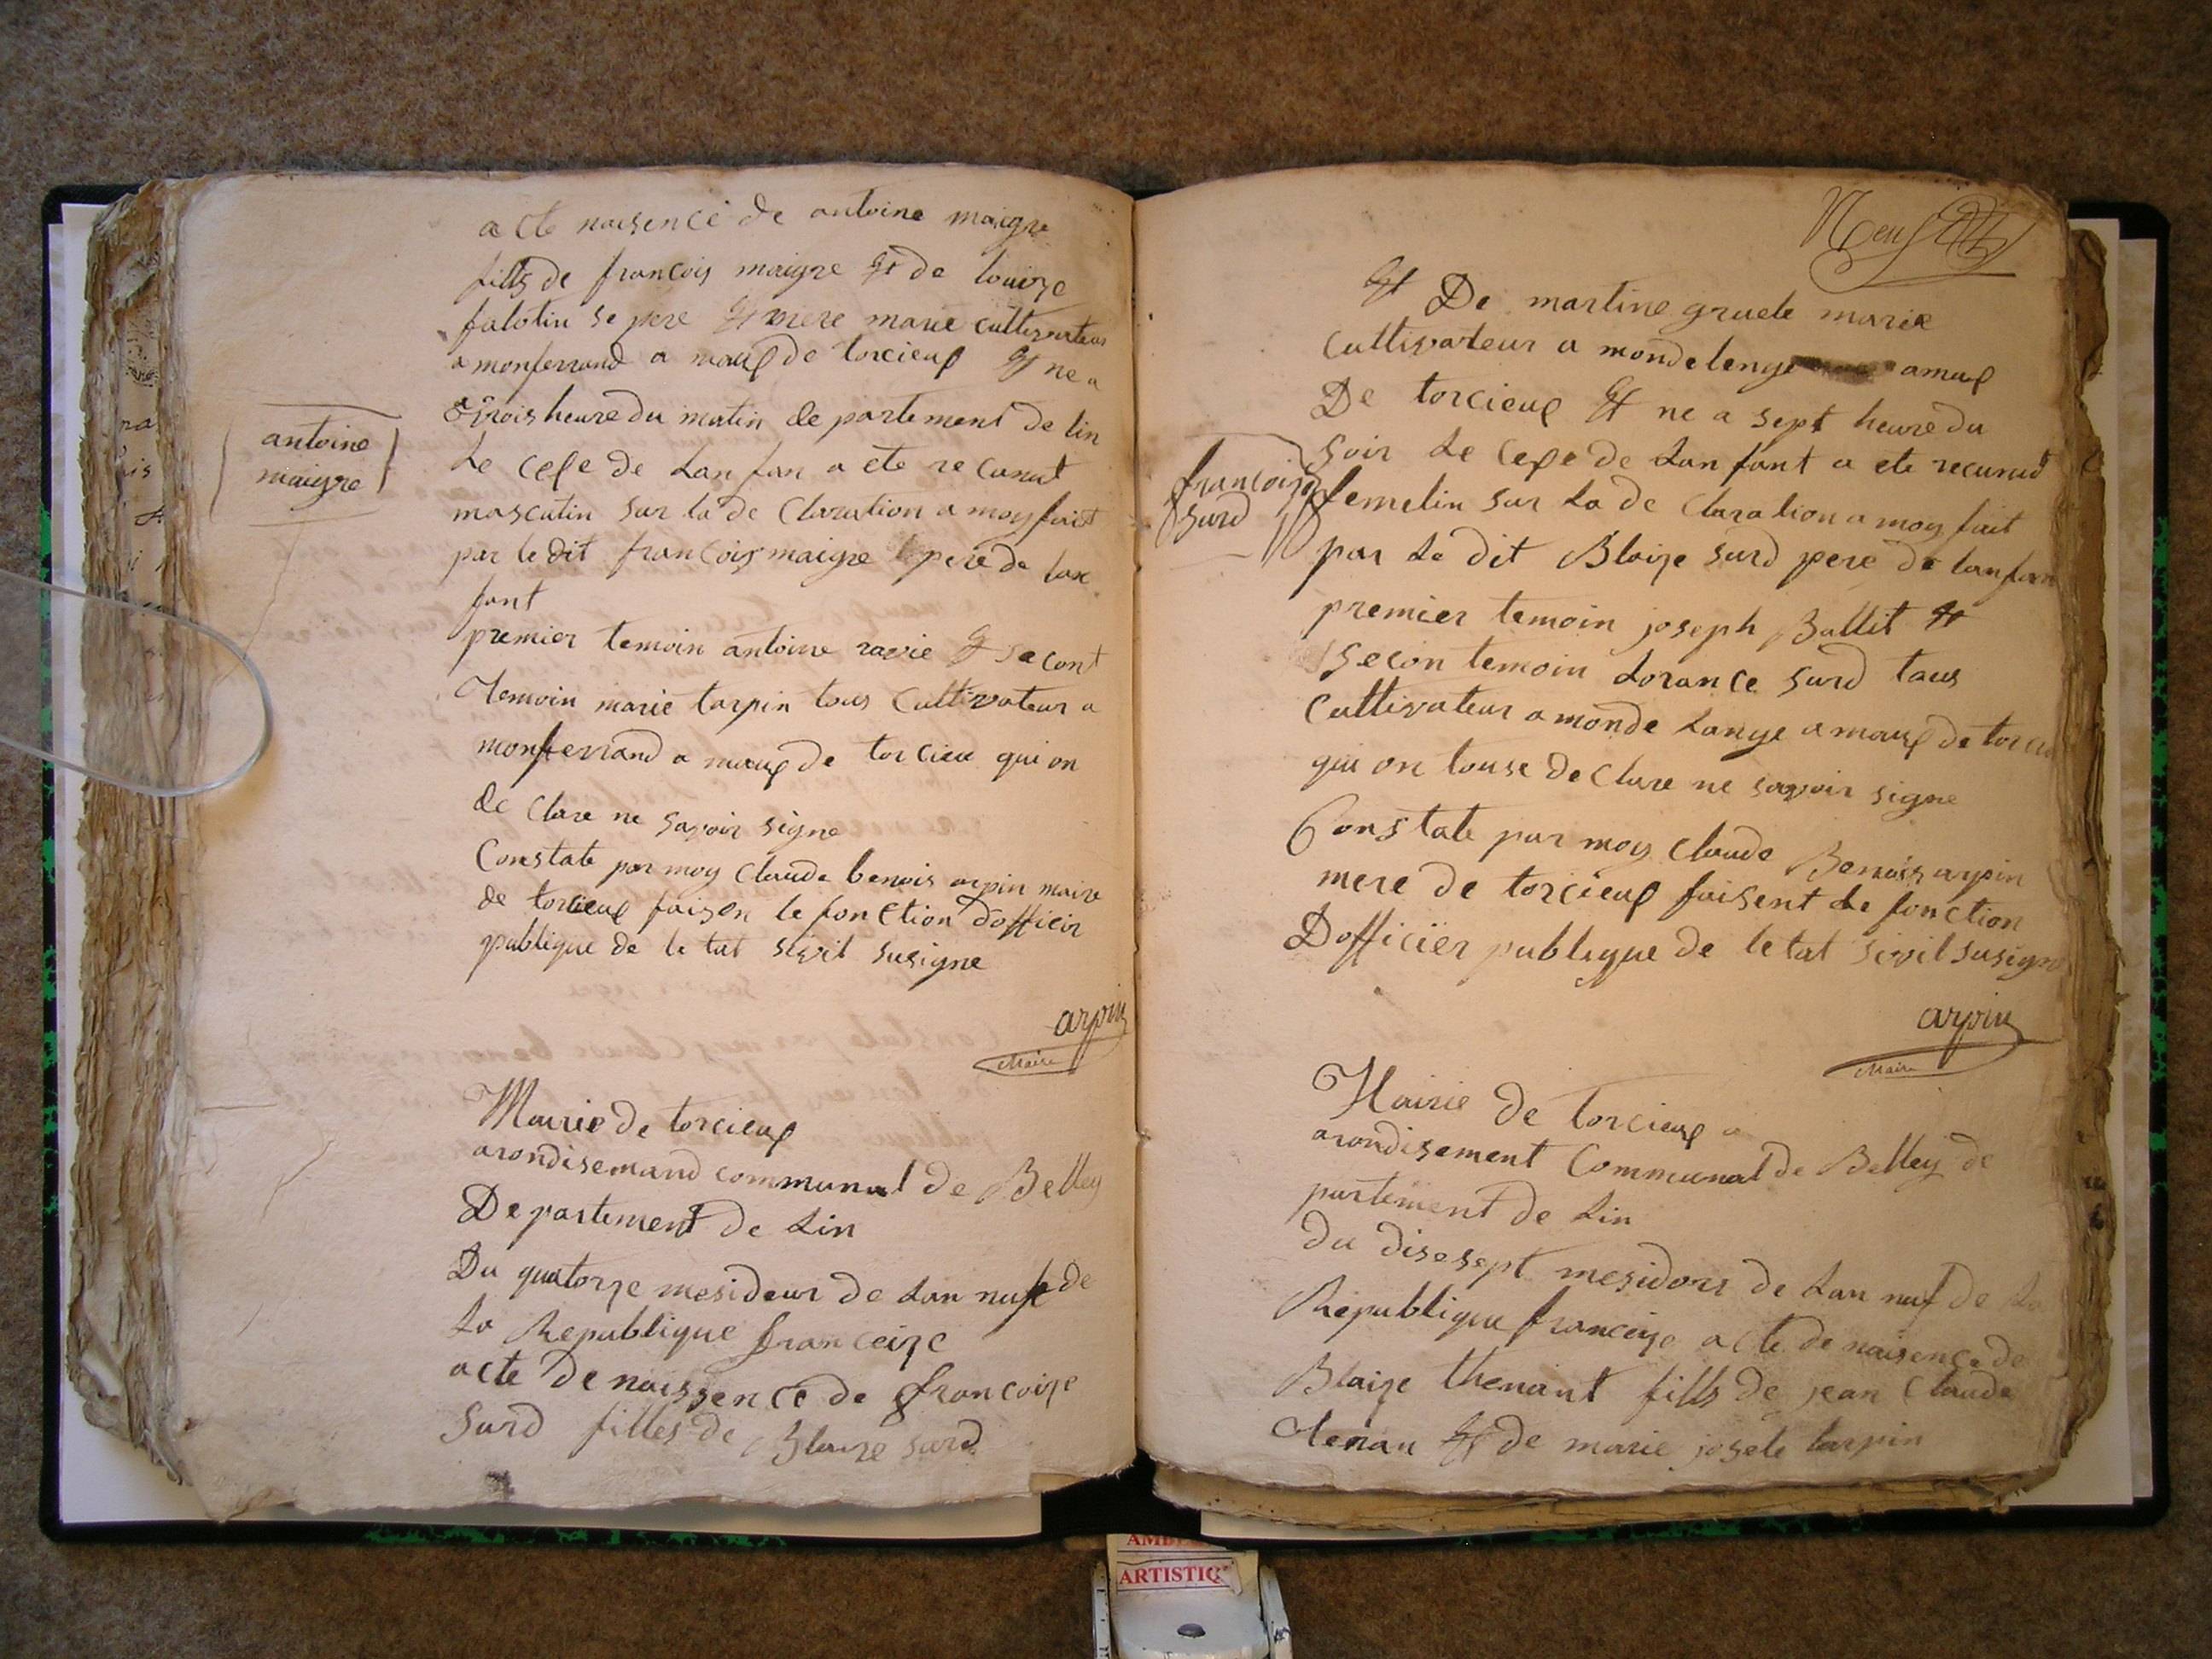 acte naisence de antoine maigre
fills de francois maigre et de louize
falotin se pere et mere marie cultivateur
a monferrand a maux de torcieux et ne a
trois heure du matin departement de lin
Le cexe de Lan fan a ete re conut
masculin sur la de Claration a moy fait
par le dit francois maigre pere de lan
fant
premier temoin antoine ravie et secont
temoin marie tarpin tous Cultivateur a
monferrand a maux de torcieu qui on
de Clare ne savoir signe
Constate par moy Claude benois arpin maire
de torcieux faison le fonction dofficir
publique de le tat sivil susigne
arpin
Maire
antoine
maigre
Mairie de torcieux
arondisemand communal de Belley
Departement de Lin
Du quatorze mesideur de Lan nuf de
La Republique franceize
acte de naissence de francoize
Surd filles de Blaize surd
Neuf
et De martine gruele marie
Cultivateur a mondelenge amaux
De torcieux et ne a sept heure du
soir Le Cexe de Lan fant a ete recunud
femelin sur La de Claration a moy fait
par Le dit Blaize surd pere de lanfan
premier temoin joseph Ballit et
secon temoin Lorance surd taus
Cultivateur a monde Lange a maux de torcieu
qui on touse de Clare ne savoir signe
Constate par moy Claude Benois arpin
mere de torcieux faisent Le fonction
Dofficier publique de letat sivil susigne
arpin
Maire
francoize
surd
Mairie de torcieux
arondisement Communal de Belley de
partement de Lin
du disesept mesidors de Lan nuf de La
Republique franceize acte de naisence de
Blaize thenant fills de jean Claude
tenan et de marie josete tarpin
ARTISTIQ